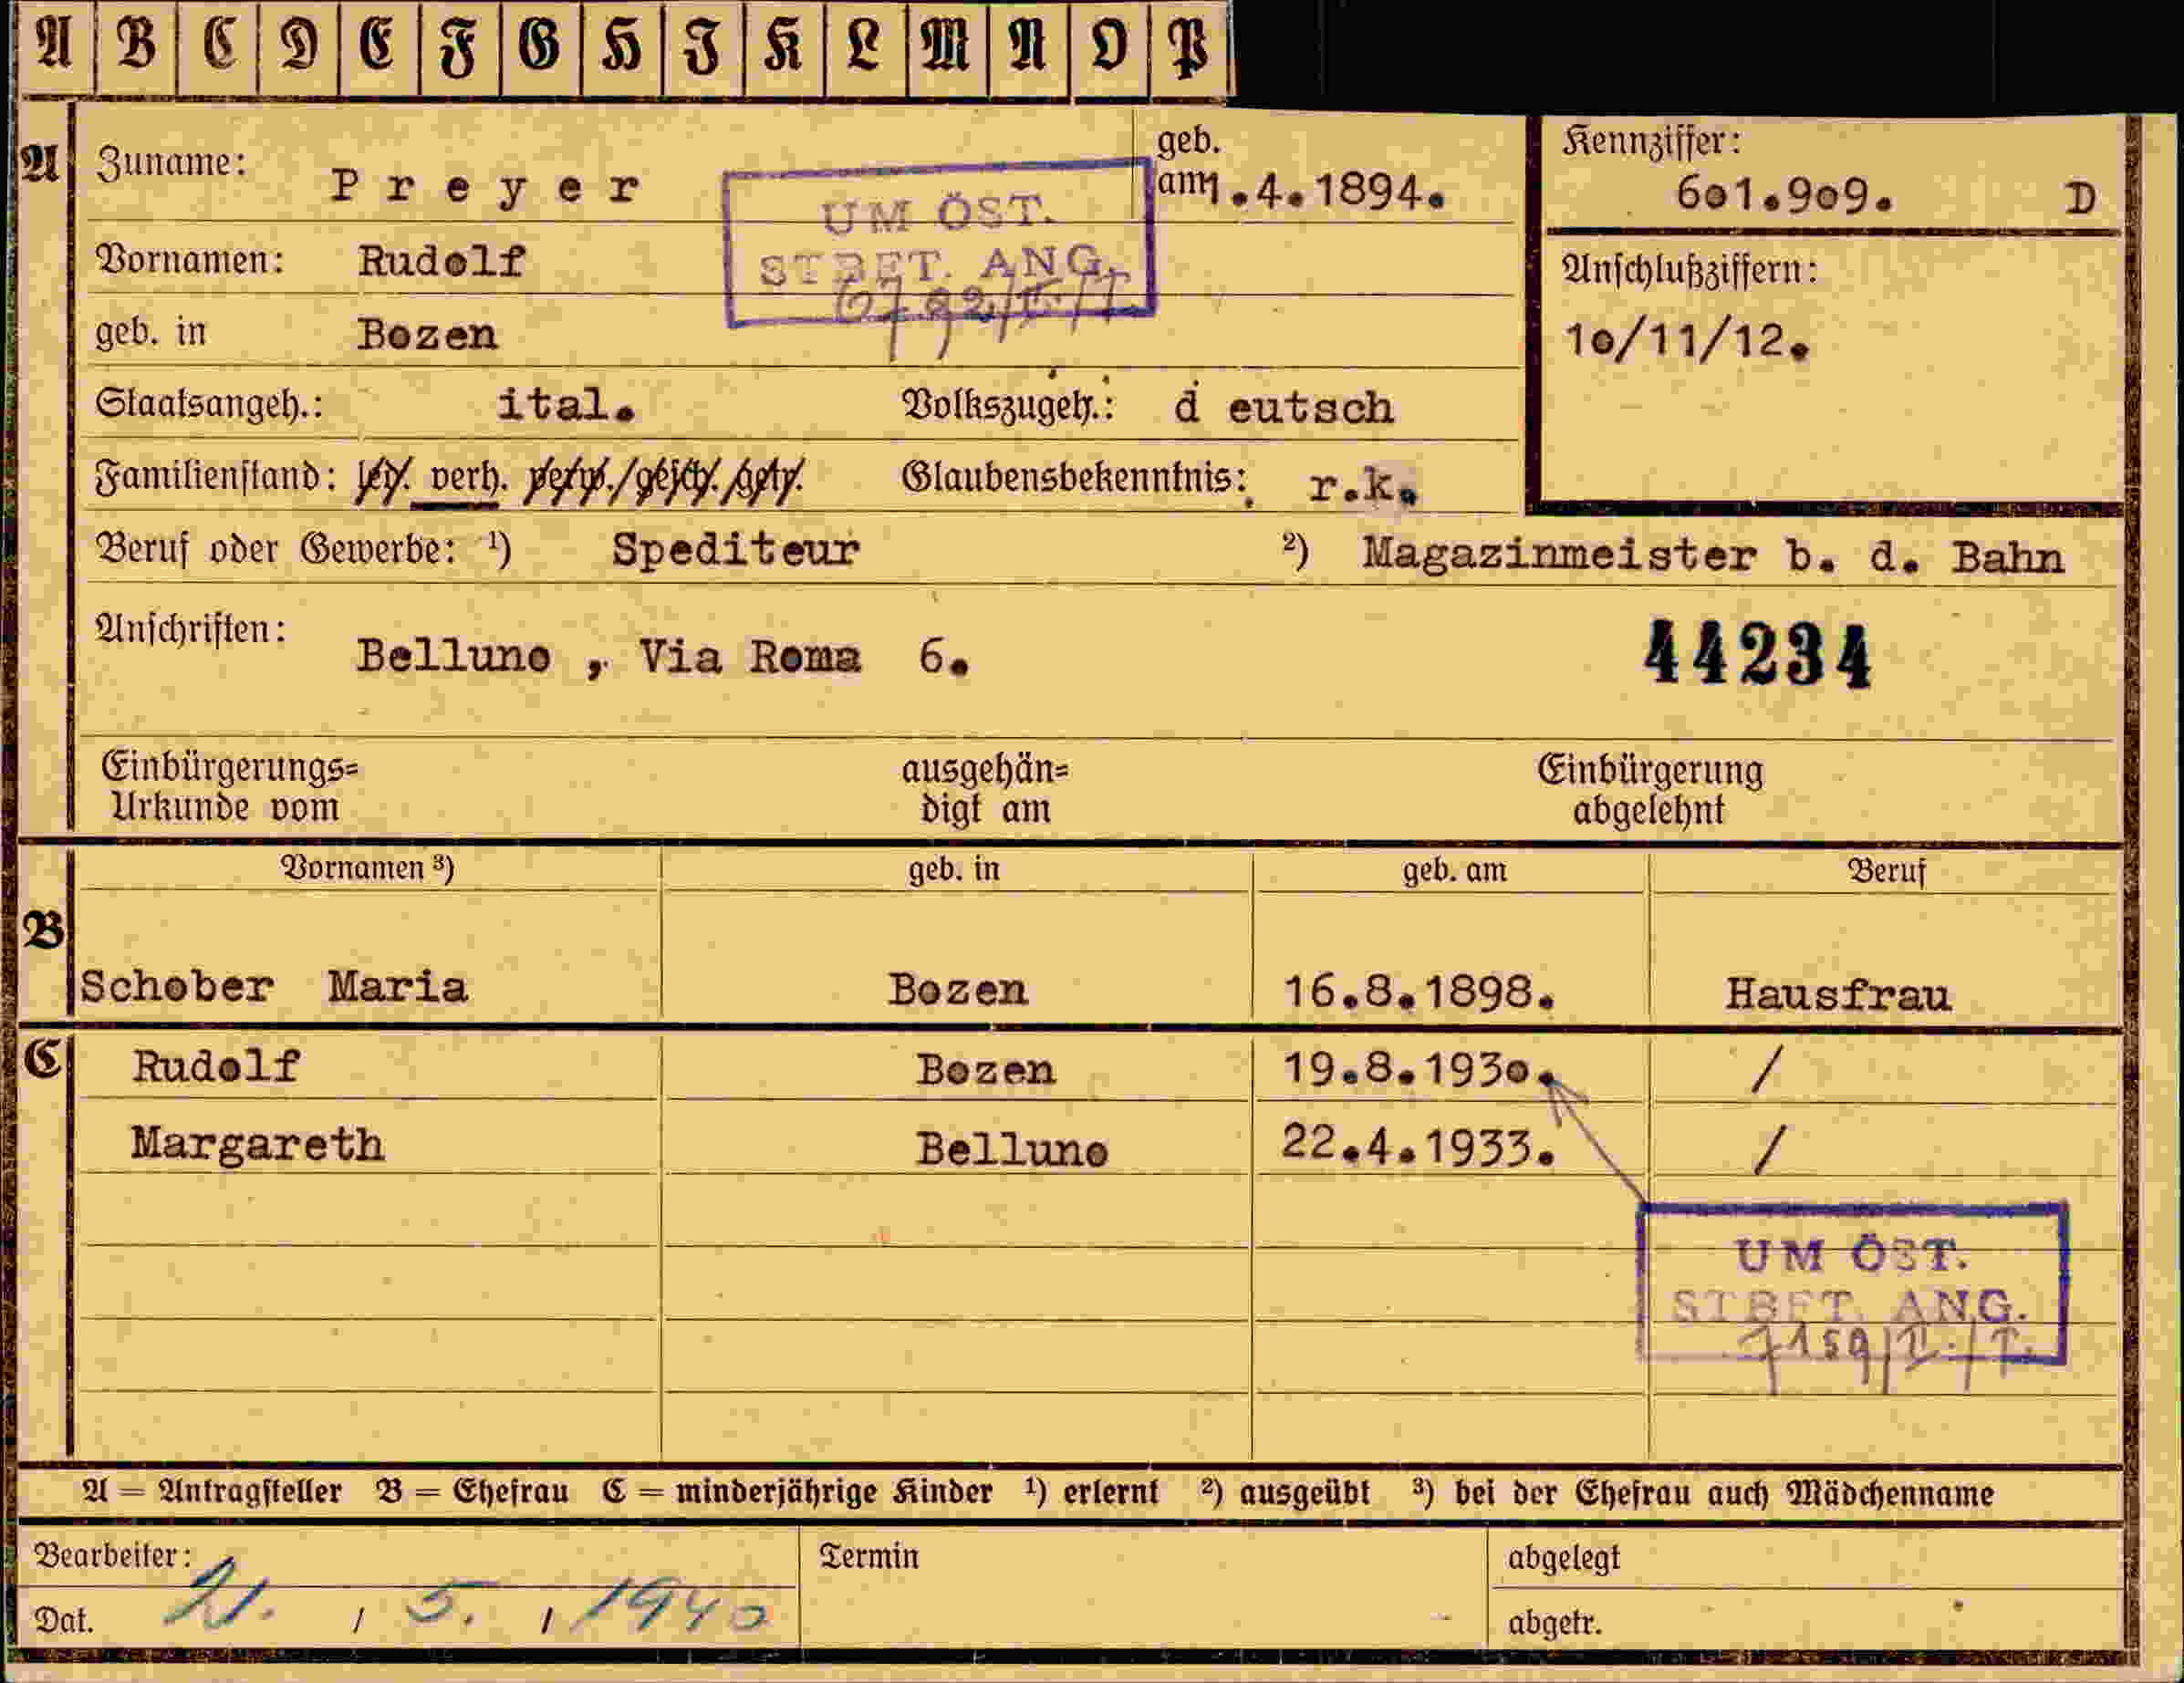 A B C D E F G H I K L M N O P
A Zuname: Preyer geb. am 1.4.1894. Kennziffer: 601.909. D
UM ÖST.
STBET. ANG.
Vornamen: Rudolf
Anschlußziffern:
geb. in Bozen
10/11/12.
Staatsangeh.: ital. Volkszugeh.: d eutsch
Familienstand: led. verh. verw./gesch./getr. Glaubensbekenntnis: r.k.
Beruf oder Gewerbe: ¹) Spediteur ²) Magazinmeister b. d. Bahn
Anschriften: Belluno , Via Roma 6.
44234
Einbürgerungs= ausgehän= Einbürgerung
Urkunde vom digt am abgelehnt
Vornamen ³) geb. in geb. am Beruf
B
Schober Maria Bozen 16.8.1898. Hausfrau
C Rudolf Bozen 19.8.1930. /
Margareth Belluno 22.4.1933. /
UM ÖST.
STBET. ANG.
7159/II./T.
A = Antragsteller B = Ehefrau C = minderjährige Kinder ¹) erlernt ²) ausgeübt ³) bei der Ehefrau auch Mädchenname
Bearbeiter: Termin abgelegt
Dat. 21. / 5. / 1940 abgetr.